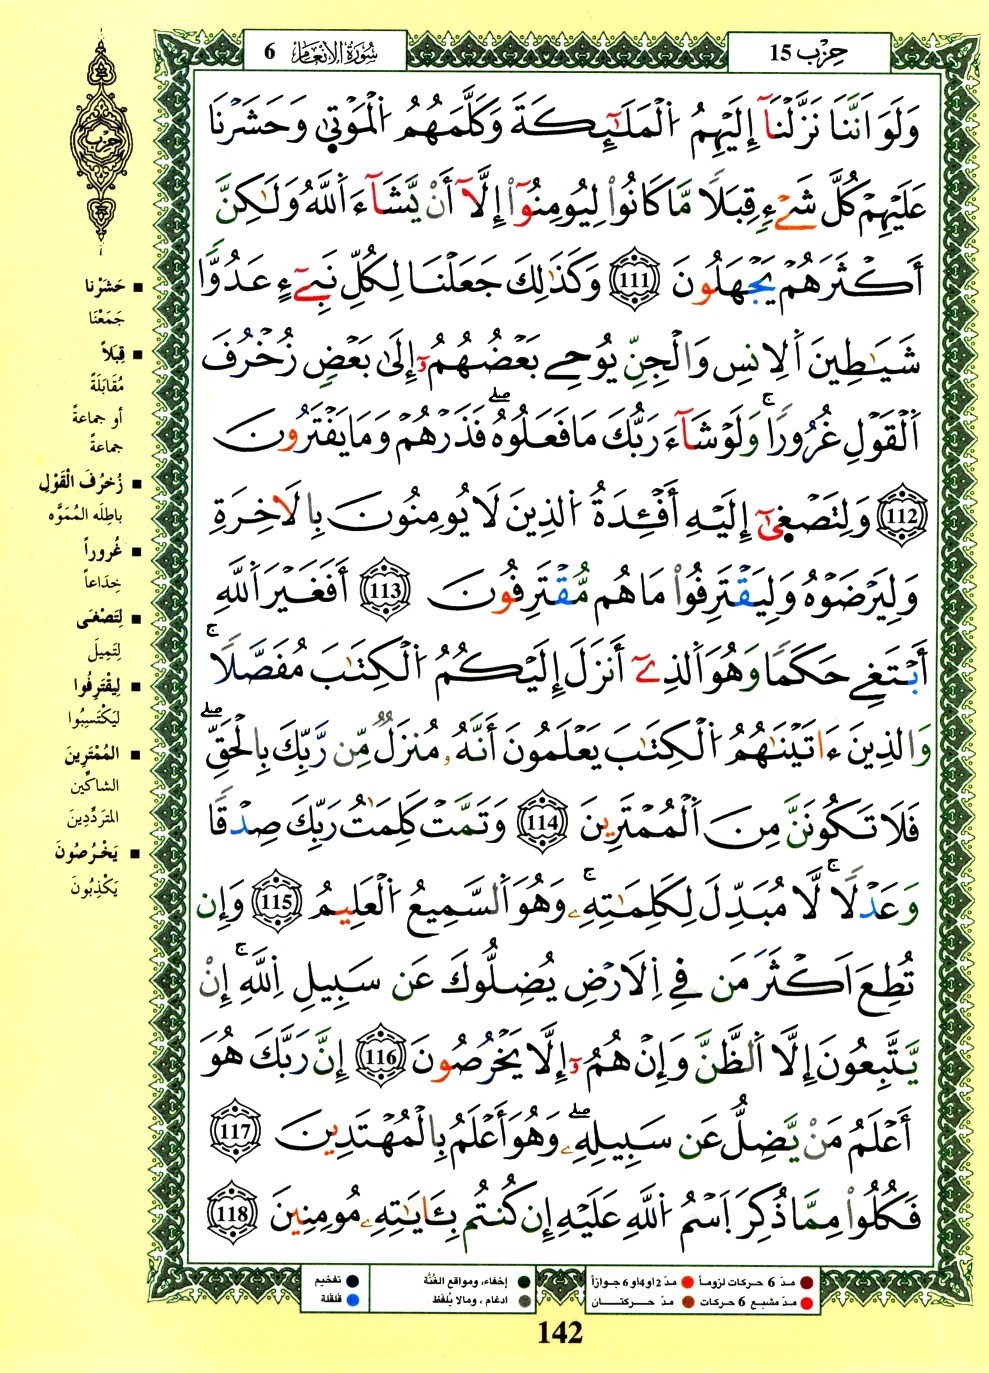 سُورَةُ الأنْعَام 6
حِزْب 15
وَلَوَ اَنَّنَا نَزَّلْنَآ إِلَيْهِمُ الْمَلَٰٓئِكَةَ وَكَلَّمَهُمُ الْمَوْتٜىٰ وَحَشَرْنَا
عَلَيْهِمْ كُلَّ شَےْءٖ قِبَلاٗ مَّا كَانُواْ لِيُومِنُوٓاْ إِلَّآ أَنْ يَّشَآءَ اَللَّهُ وَلَٰكِنَّ
أَكْثَرَهُمْ يَجْهَلُونَ 111 وَكَذَٰلِكَ جَعَلْنَا لِكُلِّ نَبِےٓءٍ عَدُوّاٗ
شَيَٰطِينَ اَلِانسِ وَالْجِنِّ يُوحِے بَعْضُهُمُۥٓ إِلَىٰ بَعْضٖ زُخْرُفَ
اَلْقَوْلِ غُرُوراٗ ۚ وَلَوْ شَآءَ رَبُّكَ مَا فَعَلُوهُ ۖ فَذَرْهُمْ وَمَا يَفْتَرُونَ
112 وَلِتَصْغٜىٰٓ إِلَيْهِ أَفْـِٕدَةُ اُلذِينَ لَا يُومِنُونَ بِالَاخِرَةِ
وَلِيَرْضَوْهُ وَلِيَقْتَرِفُواْ مَا هُم مُّقْتَرِفُونَ 113 أَفَغَيْرَ اَللَّهِ
أَبْتَغِے حَكَماٗ وَهُوَ اَلذِےٓ أَنزَلَ إِلَيْكُمُ الْكِتَٰبَ مُفَصَّلاٗ ۚ
وَالذِينَ ءَاتَيْنَٰهُمُ الْكِتَٰبَ يَعْلَمُونَ أَنَّهُۥ مُنزَلٞ مِّن رَّبِّكَ بِالْحَقِّ ۖ
فَلَا تَكُونَنَّ مِنَ اَلْمُمْتَرِينَ 114 وَتَمَّتْ كَلِمَٰتُ رَبِّكَ صِدْقاٗ
وَعَدْلاٗ ۚ لَّا مُبَدِّلَ لِكَلِمَٰتِهِۦ ۚ وَهُوَ اَلسَّمِيعُ الْعَلِيمُ 115 وَإِن
تُطِعَ اَكْثَرَ مَن فِے اِلَارْضِ يُضِلُّوكَ عَن سَبِيلِ اِللَّهِ ۚ إِنْ
يَّتَّبِعُونَ إِلَّا اَلظَّنَّ وَإِنْ هُمُۥٓ إِلَّا يَخْرُصُونَ 116 إِنَّ رَبَّكَ هُوَ
أَعْلَمُ مَنْ يَّضِلُّ عَن سَبِيلِهِۦ ۖ وَهُوَ أَعْلَمُ بِالْمُهْتَدِينَ 117
فَكُلُواْ مِمَّا ذُكِرَ اَسْمُ اُللَّهِ عَلَيْهِ إِن كُنتُم بِـَٔايَٰتِهِۦ مُومِنِينَ 118
حزب
■ حَشَرْنا
جَمَعْنَا
■ قِبَلاً
مُقَابَلَةً
أو جماعةً
جماعةً
■ زُخرُفَ الْقَوْلِ
باطِلَه المُمَوَّه
■ غُروراً
خِدَاعاً
■ لِتَصْغَى
لِتَمِيلَ
■ لِيقْتَرِفُوا
ليَكْتَسِبُوا
■ المُمْتَرِينَ
الشاكِّين
المتَردِّدِينَ
■ يَخْرُصُونَ
يَكْذِبُونَ
مدّ 6 حركات لزوماً
مدّ 2 أو 4 أو 6 جوازاً
مدّ مشبع 6 حركات
مدّ حركتان
إخفاء، ومواقع الغُنَّة
ادغام ، ومالا يُلفَظ
تفخيم
قلقلة
142